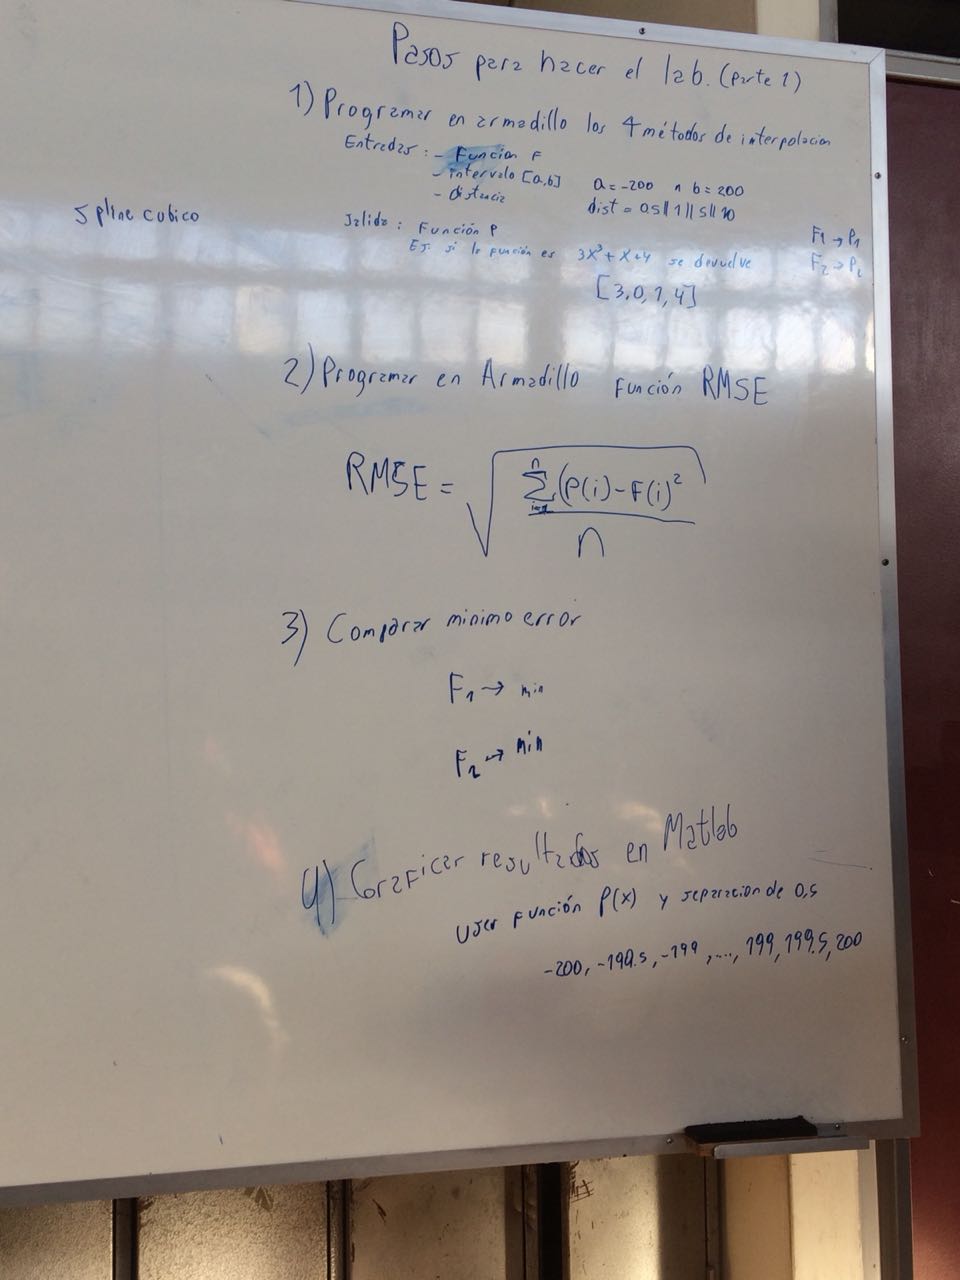 Pasos para hacer el lab. (parte 1)
1) Programar en armadillo los 4 métodos de interpolacion
Entradas : - Función F
- intervalo [a,b] a = -200 ∧ b = 200
- distancia dist = 0.5 || 1 || 5 || 10
Spline cubico
Salida : Función P F1 → P1
Ej: si la función es 3x³ + x + 4 se devuelve F2 → P2
[3,0,1,4]
2) Programar en Armadillo Función RMSE
RMSE = √ Σ (P(i) - F(i)²
n
i=1
n
3) Comparar minimo error
F1 → min
F2 → min
4) Graficar resultados en Matlab
User función P(x) y separacion de 0,5
-200, -199.5, -199, ...., 199, 199.5, 200